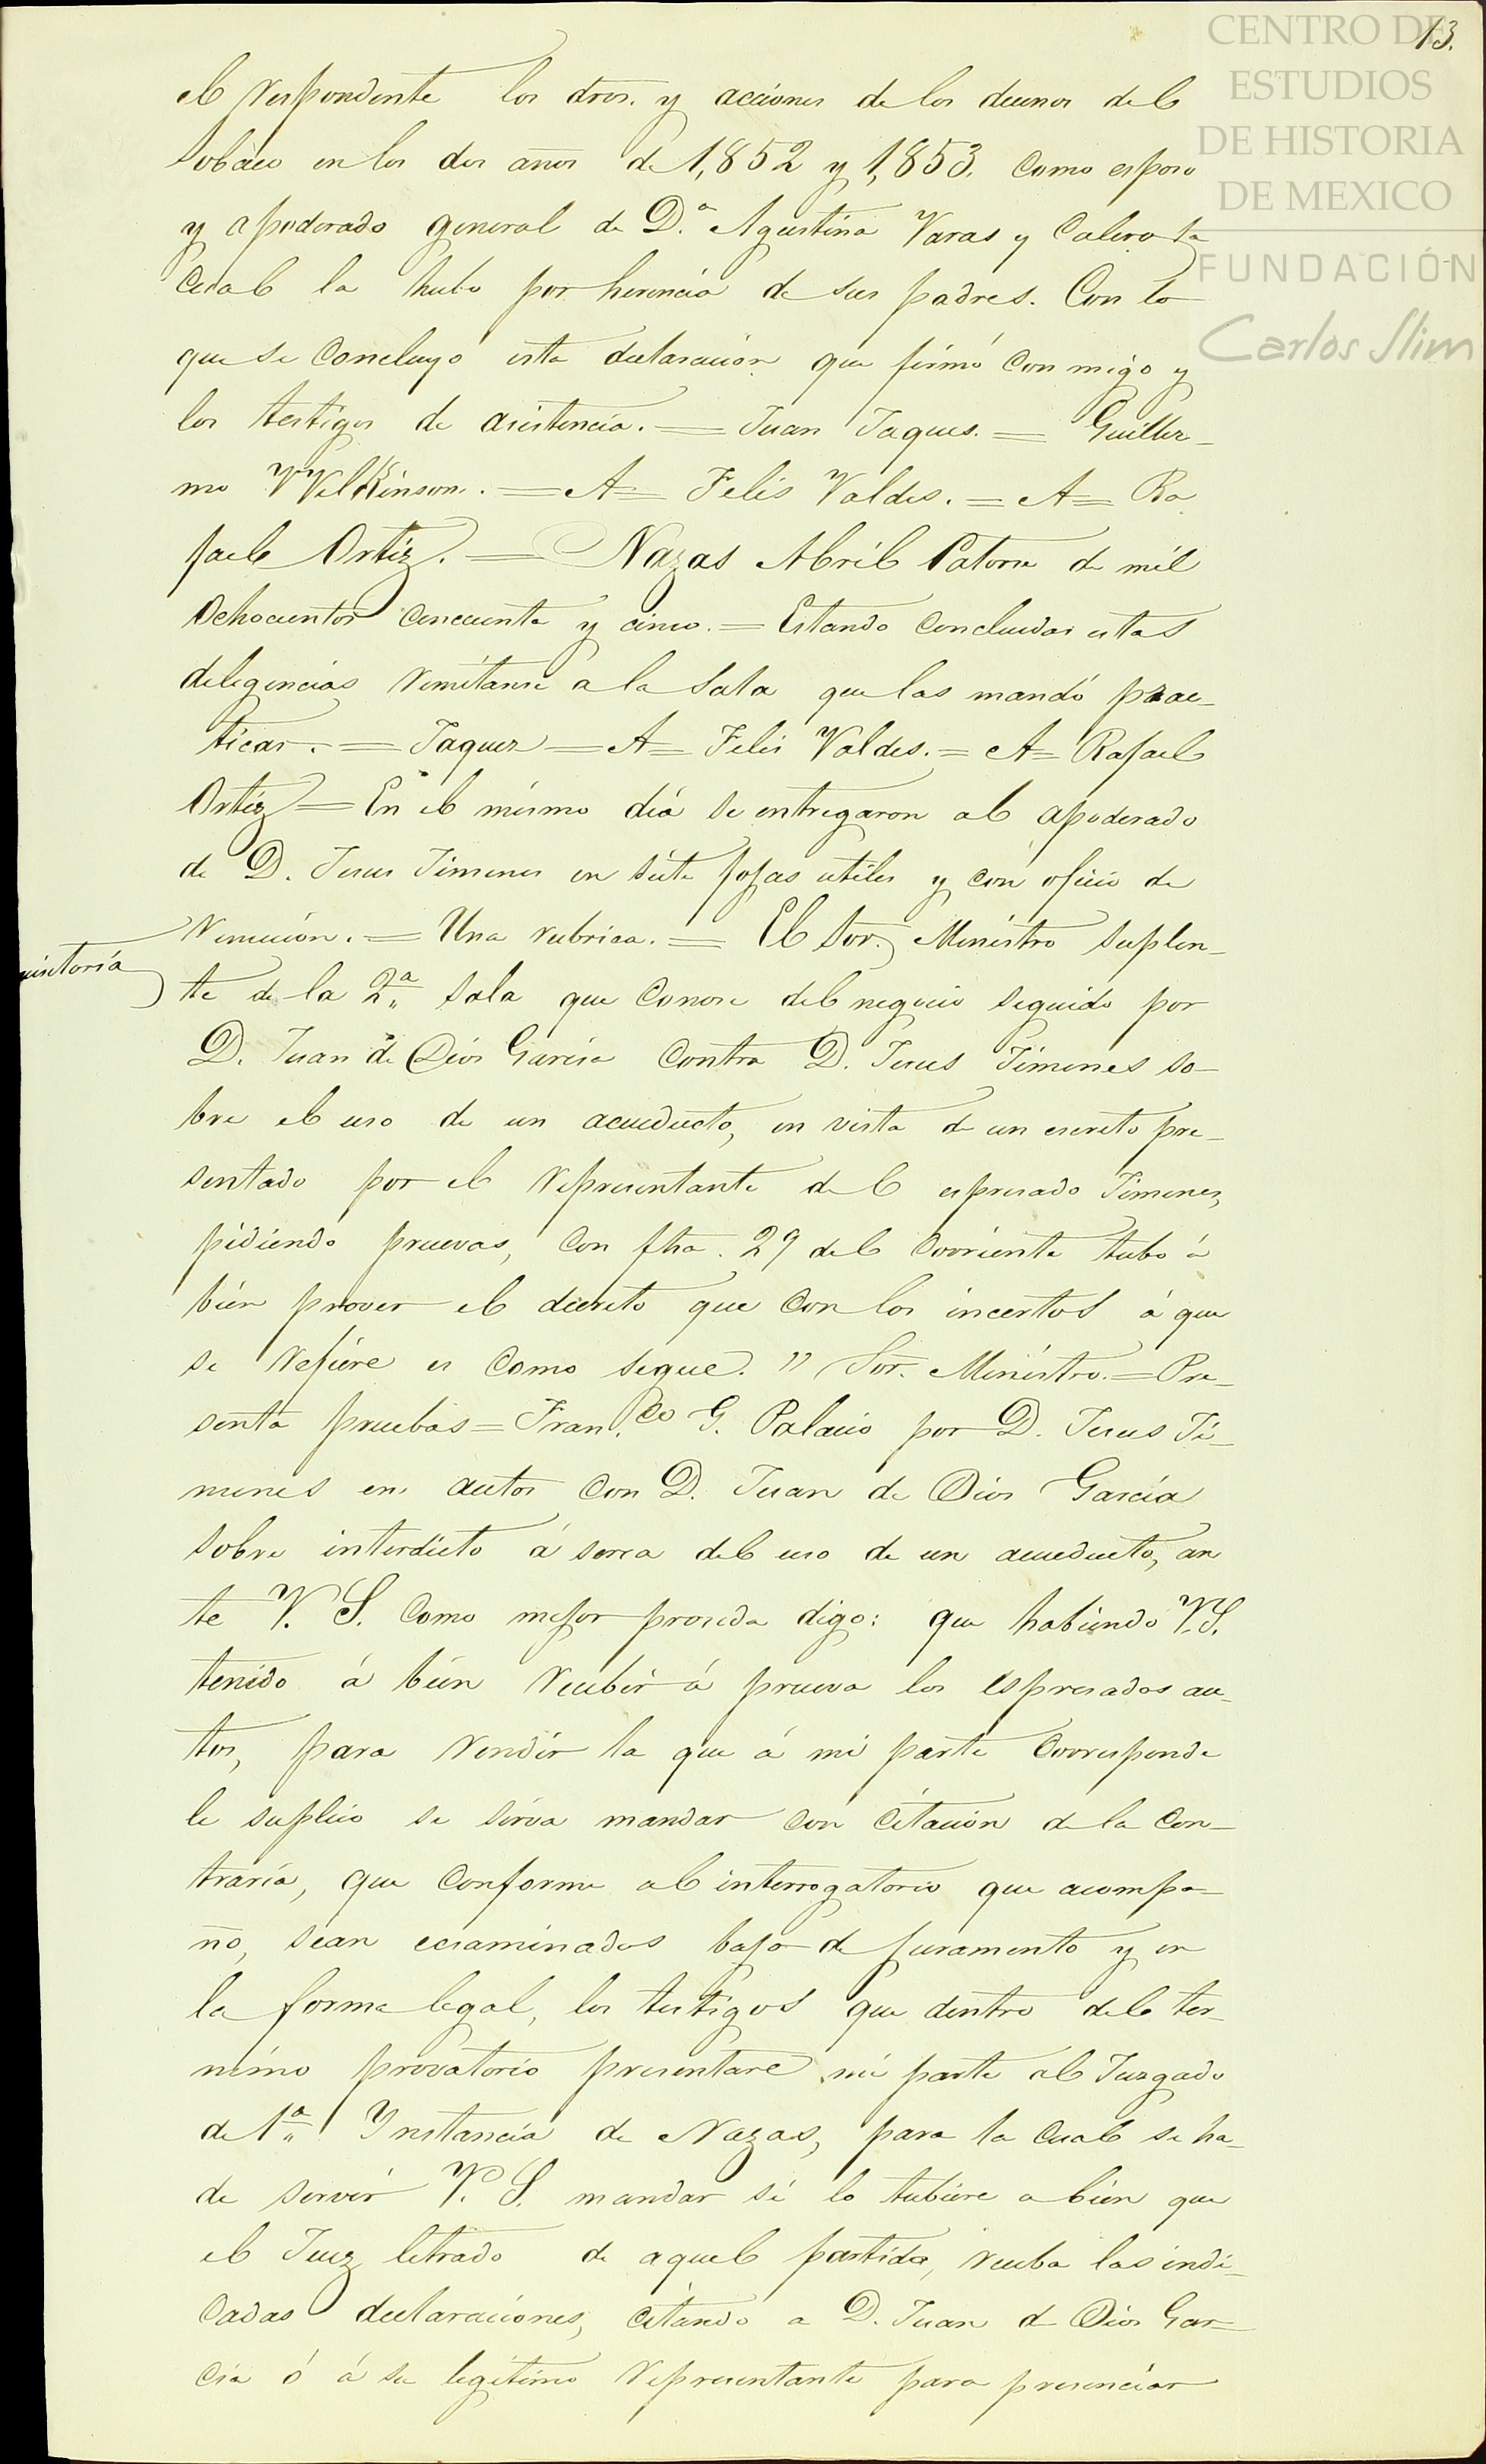 CENTRO DE
ESTUDIOS
DE HISTORIA
DE MEXICO
FUNDACIÓN
Carlos Slim
13.
el respondente los dros. y acciones de los decenos del
tobaco en los dos años de 1,852 y 1,853. como esposo
y apoderado general de D.ª Agustina Varas y Calera la
cual la hubo por herencia de sus padres. Con lo
que se concluyo esta declaracion que firmó conmigo y
los testigos de asistencia. = Juan Jaques. = Guiller-
mo WWilkinson. = A = Felis Valdes. = A = Ra
fael Ortiz. = Nazas Abril Catorse de mil
ochocientos cincuenta y cinco. = Estando concluidas estas
deligencias remitanse a la Sala que las mandó prac-
ticar. = Jaquez = A = Felis Valdes. = A = Rafael
Ortiz = En el mismo dia se entregaron al apoderado
de D. Jesus Jimenes en siete fojas utiles y con oficio de
remicion. = Una rubrica. = El Sor. Ministro suplen-
te de la 2.ª Sala que conose del negocio seguido por
D. Juan de Dios Garcia contra D. Jesus Jimenes so-
bre el uso de un acueducto, en vista de un escrito pre-
sentado por el representante del espresado Jimenes,
pidiendo pruevas, con fha. 29 del corriente tubo á
bien prover el decreto que con los incertos á que
se refiere es como sigue. " Sor. Ministro. = Pre-
senta pruebas = Fran.co G. Palacio por D. Jesus Ji-
menes en autos con D. Juan de Dios Garcia
sobre interdicto á serca del uso de un acueducto, an
te V. S. como mejor proseda digo: que habiendo V. S.
tenido á bien recibir á prueva los espresados au-
tos, para rendir la que á mi parte corresponde
le suplico se sirva mandar con citacion de la con-
traria, que conforme al interrogatorio que acompa-
ño, sean ecsaminados bajo de juramento y en
la forma legal, los testigos que dentro del ter-
nimo provatorio presentare mi parte al Juzgado
de 1.ª Ynstancia de Nazas, para la cual se ha
de servir V. S. mandar si lo tubiere a bien que
el Juez letrado de aquel partido, reciba las indi-
cadas declaraciones, citando a D. Juan de Dios Gar-
cia ó á su legitimo representante para presenciar